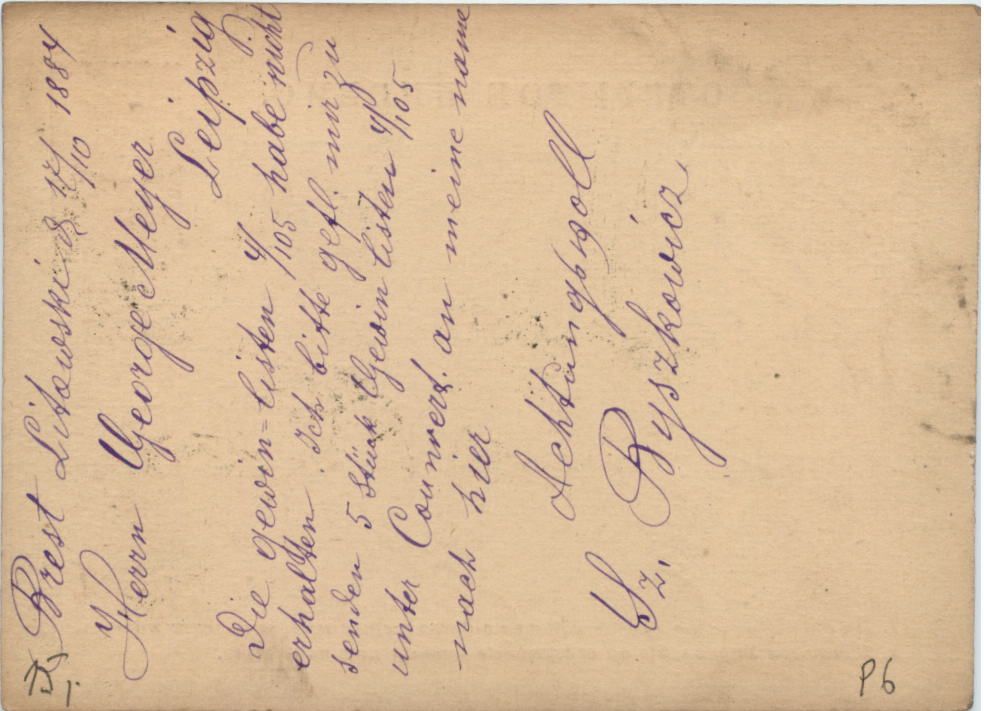 Brest Litowski d 17/10 1884
Herrn George Meyer
Leipzig
Die gewin-listen 4/105 habe nicht
erhalten. Ich bitte gefl. mir zu
senden 5 Stück Gewin listen 4/105
unter Couvert. an meine name
nach hier
Achtungsvoll
Sz. Ryszkowicz
P6